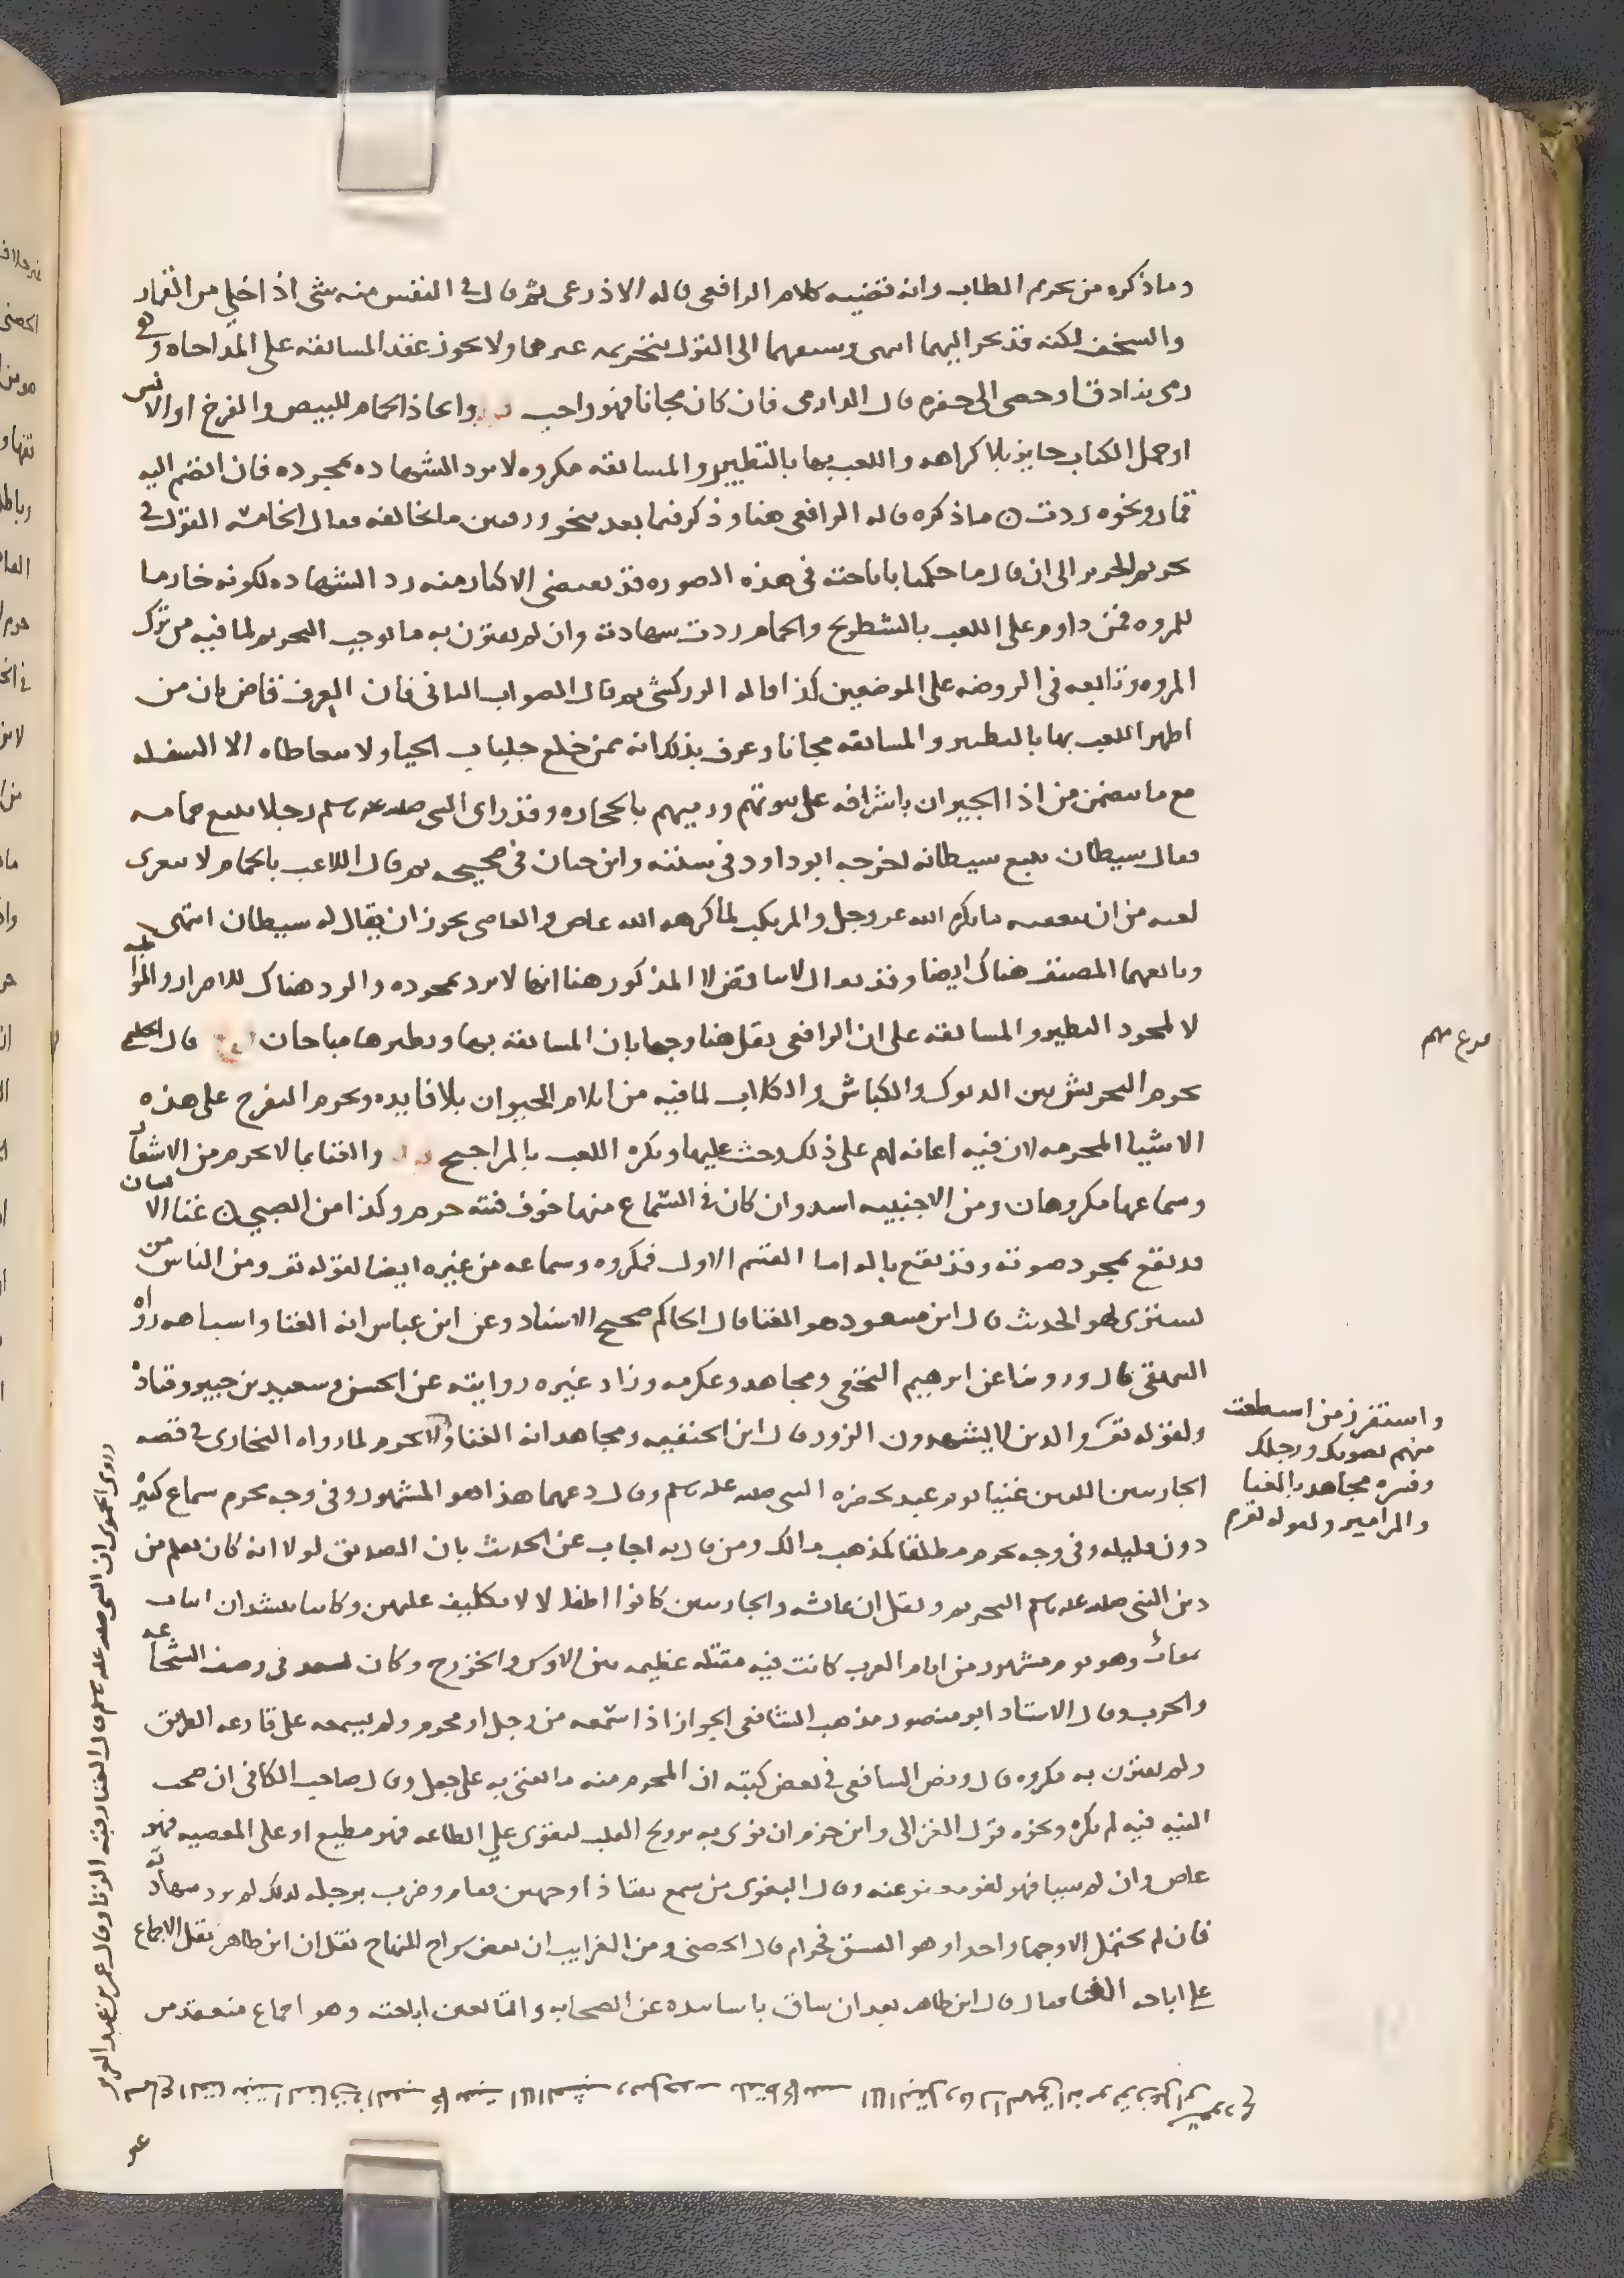 وما ذكره من تحريم الطاب وانه قضيه كلام الرافعي قاله الاذرعي ثم قال في النفس منه شي اذا خلي من القمار
والسخف لكنه قد يجر اليهما انتهى وسبقهما الى القول بتحريمه غيرهما ولا يجوز عقد المسابقه على المداحاه وهي
رمي بنادق او حصى الى حفره قال الدارمي فان كان مجانا فهو واجب واتخاذ الحمام للبيض والفرخ او الانس
او حمل الكتاب جايز بلا كراهه واللعب بها بالتطيير والمسابقه مكروه لا يرد الشهاده بمجرده فان انضم اليه
قمار ونحوه ردت ما ذكره قاله الرافعي هنا وذكر فيما بعد بنحو ورقتين ما يخالفه فقال الخامسه القول في
تحريم الحرير الى ان قال ما حكمنا باباحته في هذه الصوره قد يقتضي الاكثار منه رد الشهاده لكونه خارما
للمروه فمن داوم على اللعب بالشطرنج والحمام ردت شهادته وان لم يقترن به ما يوجب التحريم لما فيه من ترك
المروه وتابعه في الروضه على الموضعين كذا قاله الزركشي ثم قال الصواب الثاني فان العرف قاض بان من
اظهر اللعب بها بالتطيير والمسابقه مجانا وعرف بذلك انه ممن خلع جلباب الحيا ولا يتعاطاه الا السفله
مع ما يتضمن من اذا الجيران باشرافه على بيوتهم ورميهم بالحجاره وقد راى النبي صلى الله عليه وسلم رجلا يتبع حمامه
فقال شيطان يتبع شيطانه اخرجه ابو داود في سننه وابن حبان في صحيحه ثم قال اللاعب بالحمام لا يتعرى
لعبه من ان يتعقبه ما يكره الله عز وجل والمرتكب لما كرهه الله عاص والعاصي يجوز ان يقال له شيطان انتهى
وتابعهما المصنف هناك ايضا وقد يقال لا تناقض لان المذكور هنا انها لا ترد بمجرده والرد هناك للاصرار والمواظبه
لا لمجرد التطيير والمسابقه على ان الرافعي نقل هنا وجها بان المسابقه بها وتطيرها مباحان قال الحليمي
يحرم التحريش بين الديوك والكباش والكلاب لما فيه من ايلام الحيوان بلا فايده ويحرم التفرج على هذه
الاشيا المحرمه لان فيه اعانه لهم على ذلك وحث عليها ويكره اللعب بالمراجيح والغنا بما لا يحرم من الاشعار
وسماعها مكروهان ومن الاجنبيه اشد وان كان في السماع منها خوف فتنه حرم وكذا من الصبي غنا الانسان
قد يقع بمجرد صوته وقد يقع باله اما القسم الاول فمكروه وسماعه من غيره ايضا لقوله تع ومن الناس من
يشتري لهو الحديث قال ابن مسعود هو الغنا قال الحاكم صحيح الاسناد وعن ابن عباس انه الغنا واشباهه رواه
البيهقي قال وروينا عن ابرهيم النخعي ومجاهد وعكرمه وزاد غيره روايته عن الحسن وسعيد بن جبير وقتاده
ولقوله تع والذين لا يشهدون الزور قال ابن الحنفيه ومجاهد انه الغنا ولا يحرم لما رواه البخاري في قصه
الجاريتين اللتين غنيا يوم عيد بحضره النبي صلى الله عليه وسلم وقال دعهما هذا هو المشهور وفي وجه يحرم سماع كثيره
دون قليله وفي وجه يحرم مطلقا كمذهب مالك ومن قال به اجاب عن الحديث بان الصديق لولا انه كان يعلم من
دين النبي صلى الله عليه وسلم التحريم ونقل ان عائشه والجاريتين كانوا اطفالا لا تكليف عليهن وكانتا ينشدان ابيات
بعاث وهو يوم مشهور من ايام العرب كانت فيه مقتله عظيمه بين الاوس والخزرج وكان في وصف الشجاعه
والحرب وقال الاستاد ابو منصور مذهب الشافعي الجواز اذا سمعه من رجل او محرم ولم يسمعه على قارعه الطريق
ولم يقترن به مكروه قال ونص الشافعي في بعض كتبه ان المحرم منه ما يغني به على جعل وقال صاحب الكافي ان صحت
النيه فيه لم يكره ونحوه قول الغزالي وابن حزم ان نوى به ترويح القلب ليقوى على الطاعه فهو مطيع او على المعصيه فهو
عاص وان لم شيا فهو لغو معفو عنه وقال البغوي من سمع فقام وضرب برجله لذلك لم ترد شهادته
فان لم يحتمل الا وجها واحدا وهو الفسق فحرام قال الحصني ومن الغرايب ان بعض شراح المنهاج نقل ان ابن طاهر نقل الاجماع
على اباحه الغنا فقال قال ابن طاهر بعد ان ساق باسانيده عن الصحابه والتابعين اباحته وهو اجماع منعقد من
فرع مهم
واستفزز من استطعت
منهم بصوتك ورجلك
وفسره مجاهد بالغنا
والمزامير ولقوله
وروى ان النبي صلى الله عليه وسلم قال الغنا رقيه الزنا وقال عمر بن عبد العزيز